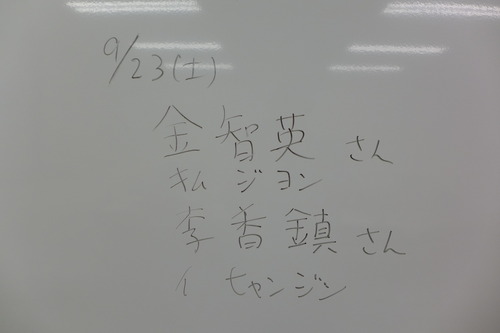 9/23(土)
金智英 さん
キム ジヨン
李香鎮 さん
イ ヒャンジン